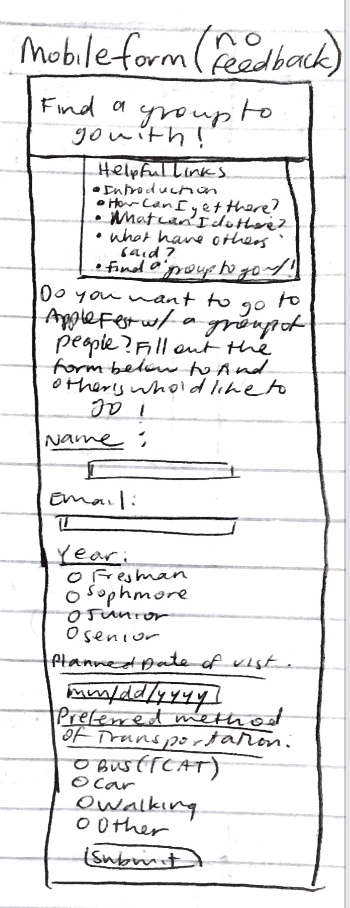 Mobile form (no
feedback)
Find a group to
go with!
Helpful Links
• Introduction
• How Can I get there?
• What can I do there?
• what have others
said?
• Find a group to go w/!
Do you want to go to
AppleFest w/ a group of
people? Fill out the
form below to find
others who'd like to
go!
Name:
Email:
Year:
Freshman
Sophmore
Junior
Senior
Planned Date of vist.
mm/dd/yyyy
Preferred method
of Transportation.
Bus (TCAT)
Car
Walking
Other
Submit